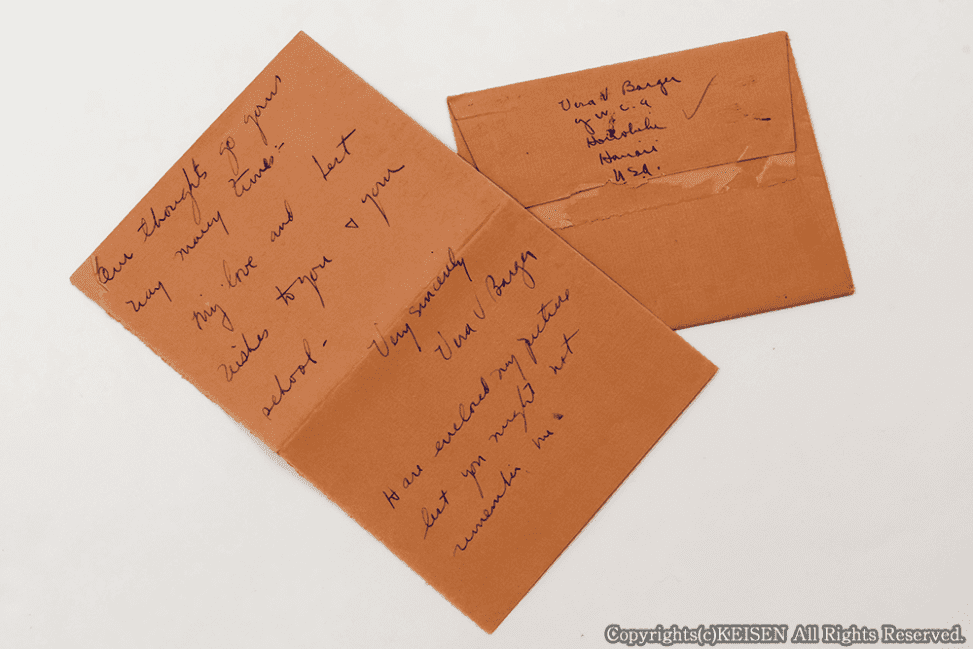 Our thoughts go your
way many times -
My love and best
wishes to you & your
school -
Very sincerely
Vera V Barger
Have enclosed my picture
lest you might not
remember me.
Vera V Barger
Y.W.C.A
Honolulu
Hawaii
U.S.A.
Copyrights(c)KEISEN All Rights Reserved.